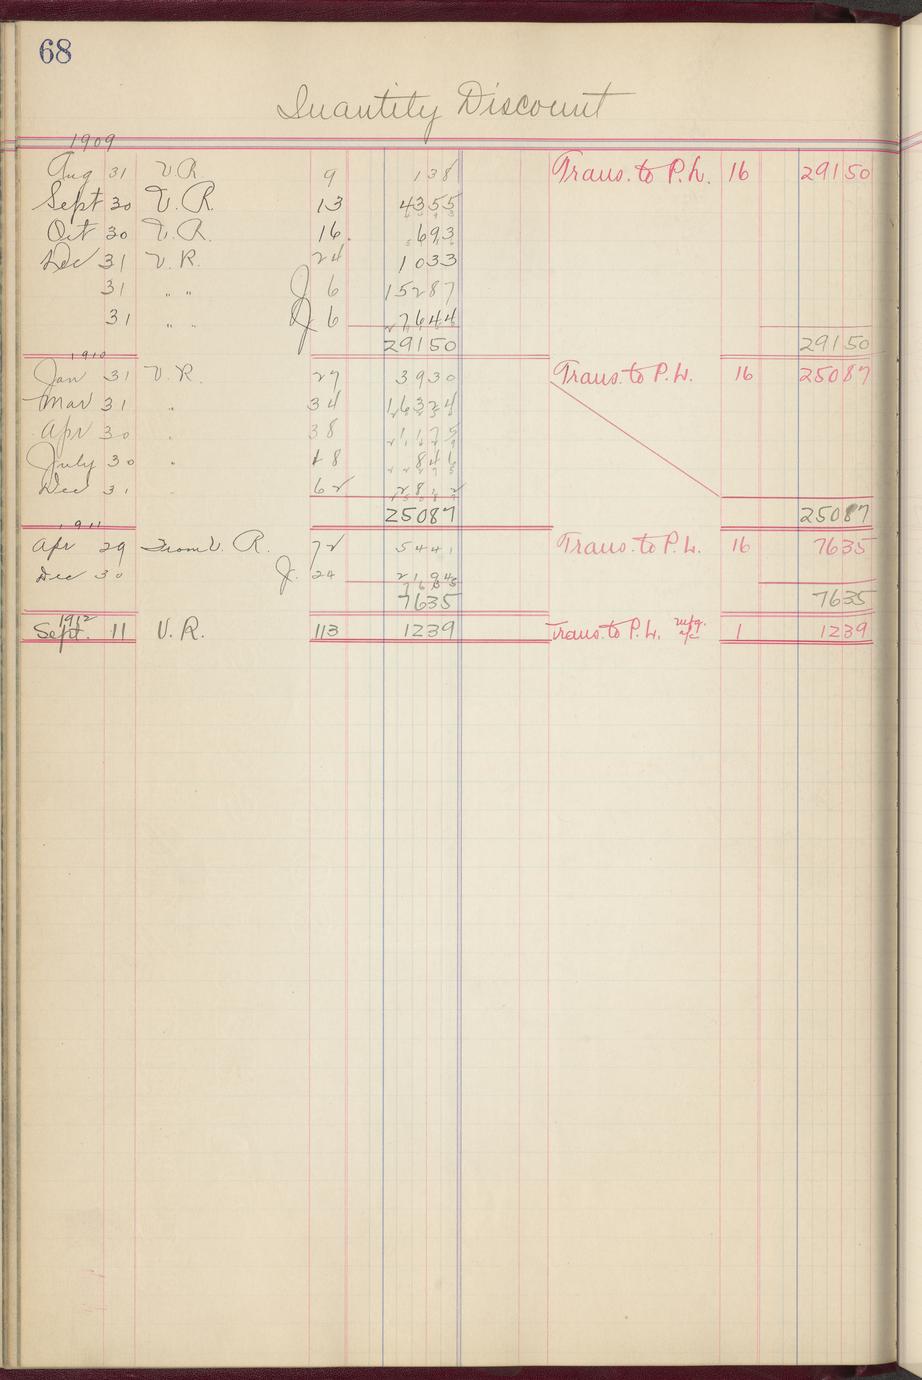 68
Quantity Discount
1909
Aug 31 V.R. 9 138 Trans. to P.L. 16 29150
Sept 30 V.R. 13 4355
Oct 30 V.R. 16 693
Dec 31 V.R. 24 1033
31 " " J 6 15287
31 " " J 6 7644
29150 29150
1910
Jan 31 V.R. 27 3930 Trans. to P.L. 16 25087
Mar 31 " 34 16324
Apr 30 " 38 1175
July 30 " 48 846
Dec 31 " 62 2812
25087 25087
1911
Apr 29 From V.R. 72 5441 Trans. to P.L. 16 7635
Dec 30 J. 24 2194
7635 7635
1912
Sept. 11 V.R. 113 1239 Trans. to P.L. mfg. a/c 1 1239